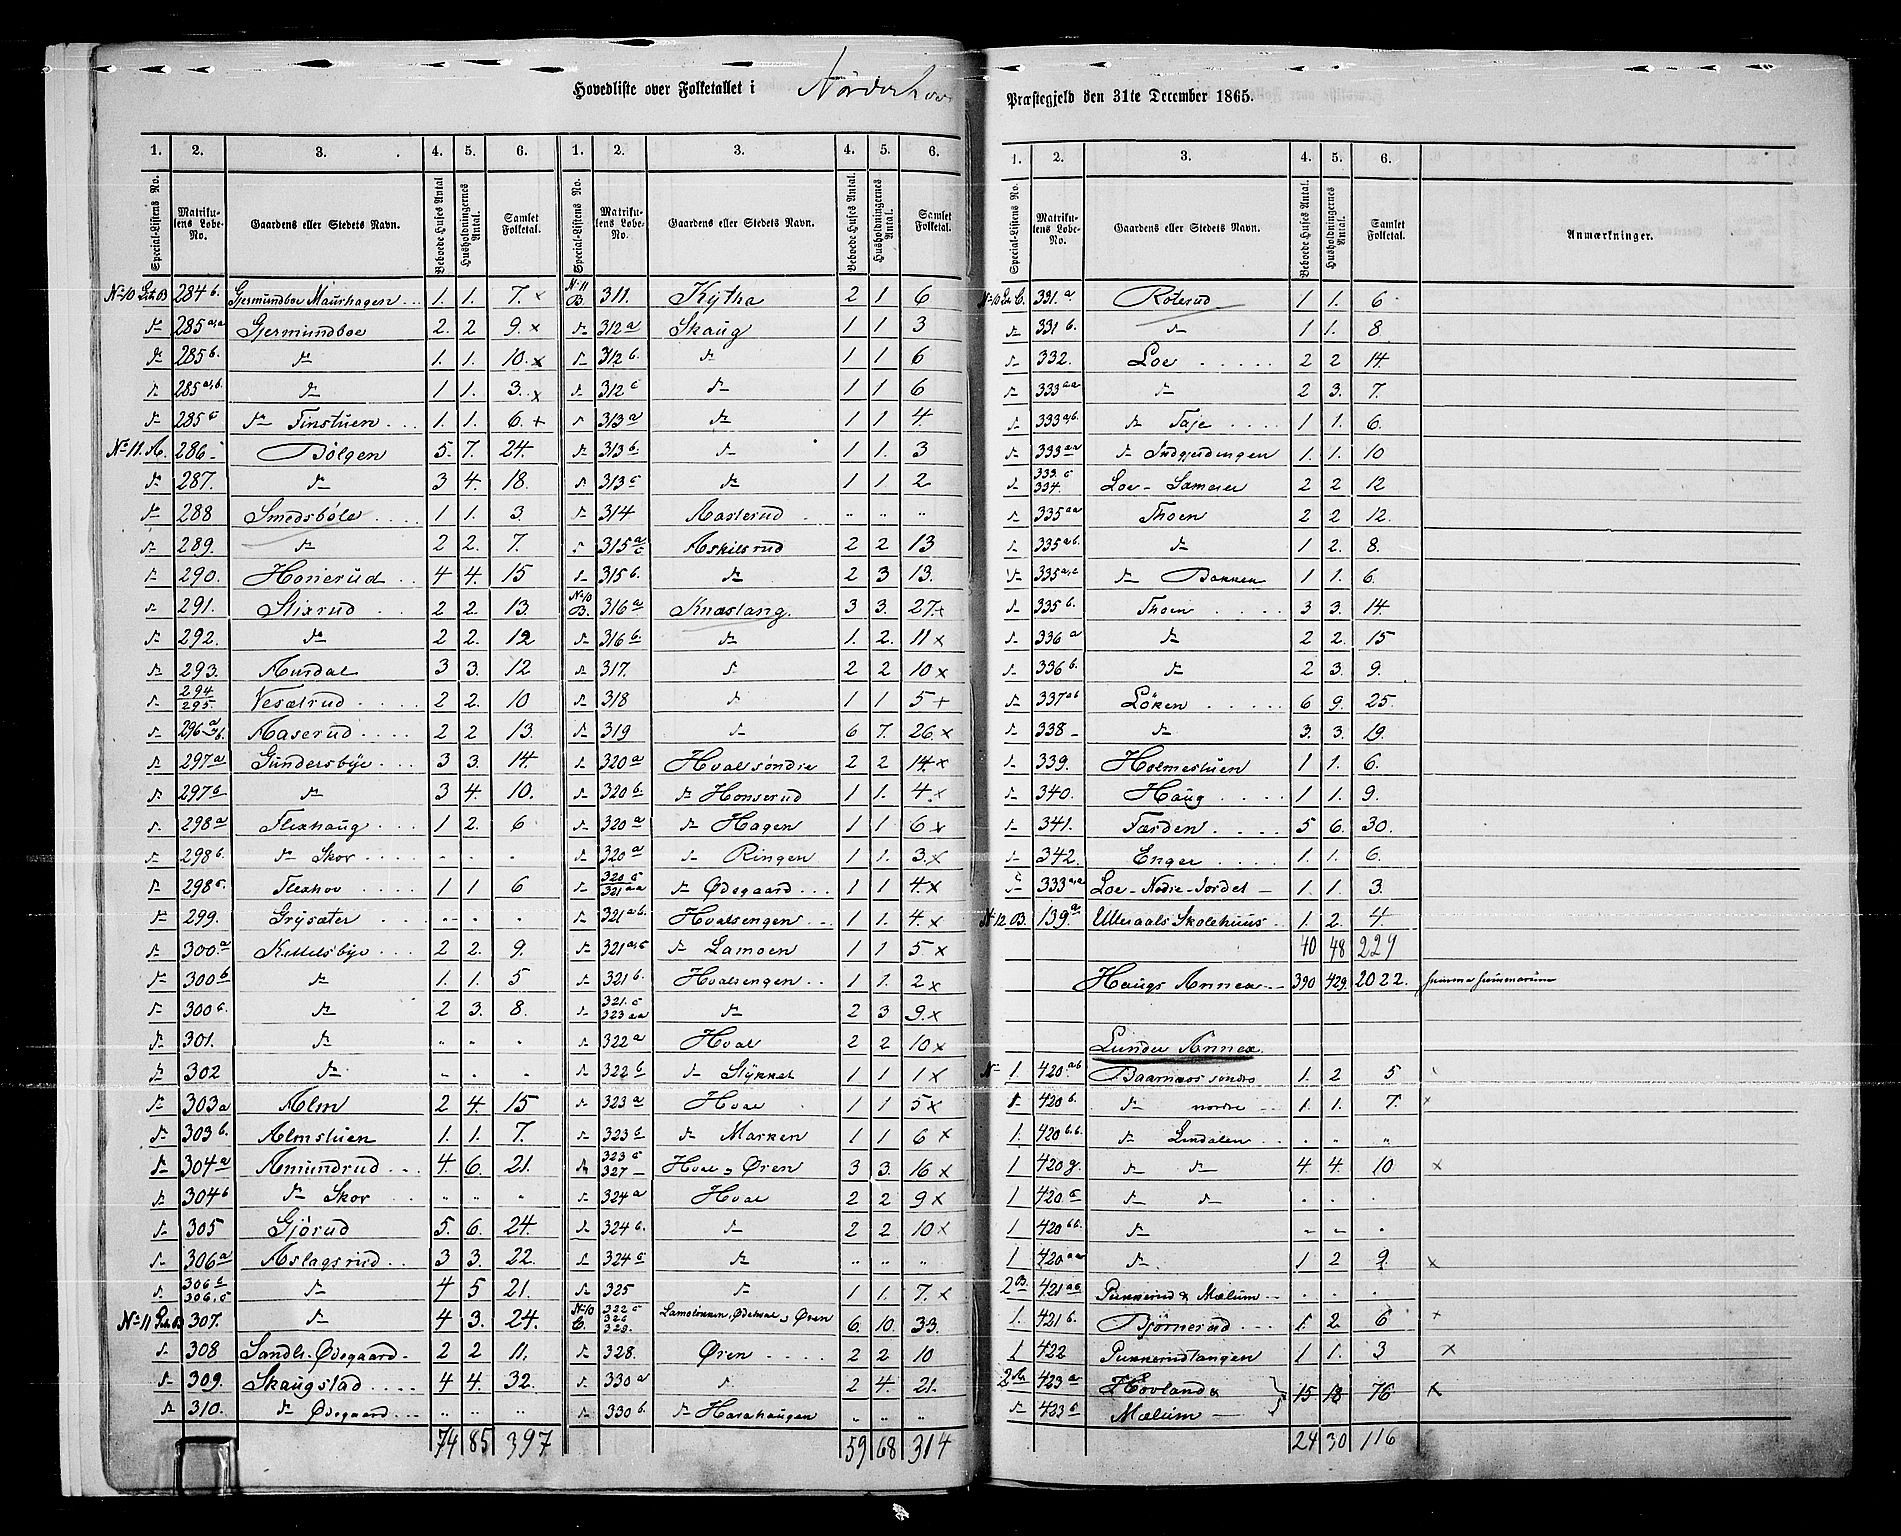 Hovedliste over Folketallet i Nørderhov
Præstegjeld den 31te December 1865.
1. 2. 3. 4. 5. 6.
Special-Listens No. Matrikulens Løbe-No. Gaardens eller Stedets Navn. Beboede Huses Antal Husholdningernes Antal. Samlet Folketal.
No 10 Lit. B 284 b. Gjermundboe Maurhagen 1. 1. 7. x
285 a,a Gjermundboe 2. 2 9. x
285 b. 1. 1. 10. x
285 a,b. 1 1. 3. x
285 c Tinstuen 1. 1. 6. +
No 11. A. 286 Bølgen 5. 7. 24.
287. 3 4. 18.
288 Smedsbøle 1 1. 3.
289. 2 2. 7.
290. Honerud 4 4. 15
291. Stixrud 2 2. 13.
292. 2 2. 12
293. Aurdal 3 3. 12
294 295. Vesetrud 2 2. 10
296 a b. Aaserud 2 2 13.
297 a Gundersbye 3 3. 14.
297 b 3 4. 10.
298 a Flexhaug 1 2. 6
298 b. Skor
298 c. Flexhov 1 1 6
299. Grysæter
300. a Kittelsbye 2 2. 9.
300 b 1. 1. 5
300 b. 2 3. 8.
301.
302
303 a Alm 2 4. 15
303 b. Almstuen 1. 1. 7.
304 a Amundrud 4. 6. 21.
304 b Skor
305 Gjørud 5. 6. 24.
306 a Aslagsrud 3 3. 22.
306 b 306. c 4 5 21.
No 11 Lit. B 307. 4 3. 24.
308 Sandli-Ødegaard 2 2 11.
309. Skaugstad 4 4. 32.
310. Ødegaard
74 85 397
1. 2. 3. 4. 5. 6.
Special-Listens No. Matrikulens Løbe-No. Gaardens eller Stedets Navn. Beboede Huses Antal. Husholdningernes Antal. Samlet Folketal.
No 11 B. 311. Kytha 2 1 6
312 a Skaug 1 1 3
312 b. 1 1 6
312 c 1 1 6
313 a 1 1 4
313 b 1 1. 3
313 c 1 1 2
314 Aaslerud
315 a c Askilsrud 2 2 13
315 b. 2 3 13.
No 10 B. 316 a Knæstang. 3 3. 27. x
316 b. 1. 2. 11 x
317. 2 2 10 x
318 1 1 5 +
319 6 7. 26 x
320 a Hval søndre 2 2 14 x
320 b. Honserud 1 1. 4. x
320 a Hagen 1 1 6 x
320 a Ringen 1 1. 3. x
320 c 321 a,a Ødegaard 1 1 4. x
321 a,b. Hvalsengen 1 1. 4. x
321 a,c Lamoen 1 1 5 x
321 b. Hvalsengen 1 1. 2 x
321. c 323 a,a 2 3 9. x
322 a Hval 2 2 10 x
322 b Stykket 1 1 1 x
323 a Hval 1 1 5 x
323 b Marken 1 1 6 x
323 c 327 Hval Øren 3 3. 16 x
324 a Hval 2 2 9 x
324 b. 2 2 10 x
324 c
325 1 1. 7. x
No 10 C. 322 c 326 329. Øren 6. 10. 33.
328. Øren 2 2 10
330 a 2 4. 21.
330 b. Harahaugen
59 68 314
1. 2. 3. 4. 5. 6.
Special-Listens No. Matrikulens Løbe-No. Gaardens eller Stedets Navn. Beboede Huses Antal. Husholdningernes Antal. Samlet Folketal. Anmærkninger.
No 10 Lit C. 331. a Røterud 1 1. 6
331 b. 1 1. 8
332. Loe 2 2 14.
333 a,a 2 3. 7.
333 a,b. Taje 1 1. 6.
333 a,a Indgjerdingen 1. 1. 10
333. c 334. Loe-Sameier 2 2 12
335 a,a Thoen 2 2 12.
335 a,b. 1 2. 8.
335 a,c Bakken 1 1. 6.
335 b. Thoen 3 3. 14
336 a 2 2. 15
336 b. 2 3. 9.
337 a,b Løken 6 9. 25.
338 3. 3. 19.
339. Holmestuen 1 1. 6.
340. Haug 1 1. 9.
341. Færden 5 6. 30.
342. Enger 1. 1. 6.
333 a,a Loe-Nedre-Jordet 1 1. 3.
No 12. B. 139. a Ulleraals Skolehuus 1. 2. 4.
40 48 229
Haugs Annex 390 429. 2022. summa summarum
Lunder Annex.
No 1 420. a,b Baarnaas søndre 1. 2 5
1 420 b. nordre 1. 1. 7. x
1. 420 b.b. Lindalen
1 420 g. 4. 4. 10 x
1 420 c
1 420 b.b.
1 420 a,a 1 2 9. x
2 B. 421 a,a Pukkerud & Mælum
1. 421 b. Bjørnerud 1. 2. 6 x
1 422 Pukkerudtangen 1 1. 3 x
2 A 423 a Hovland & 15 18 76 x
423 c Mælum
24 30 116